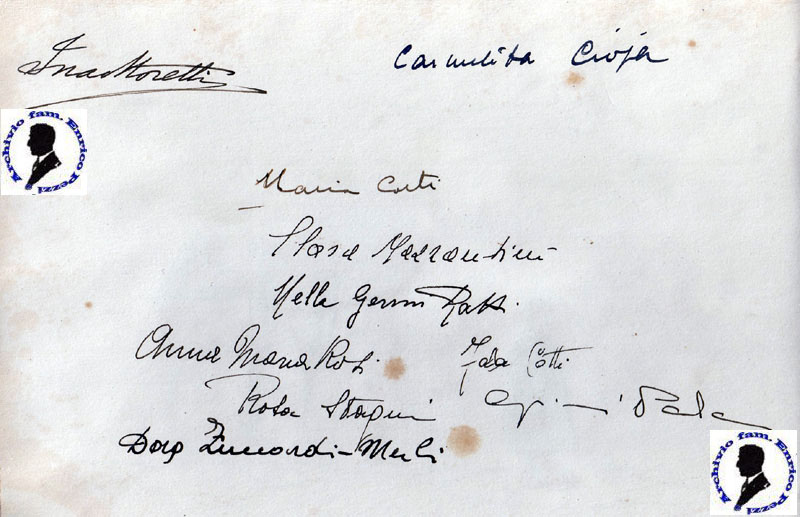 Ina Moretti
Carmelita Cioja
Archivio fam. Enrico Pezzi
Maria Corti
Mazzantini
Nella Ratti
Anna Maria Rosi
Ida Cotti
Rosa Stagni
Zuccardi-Merli
Archivio fam. Enrico Pezzi